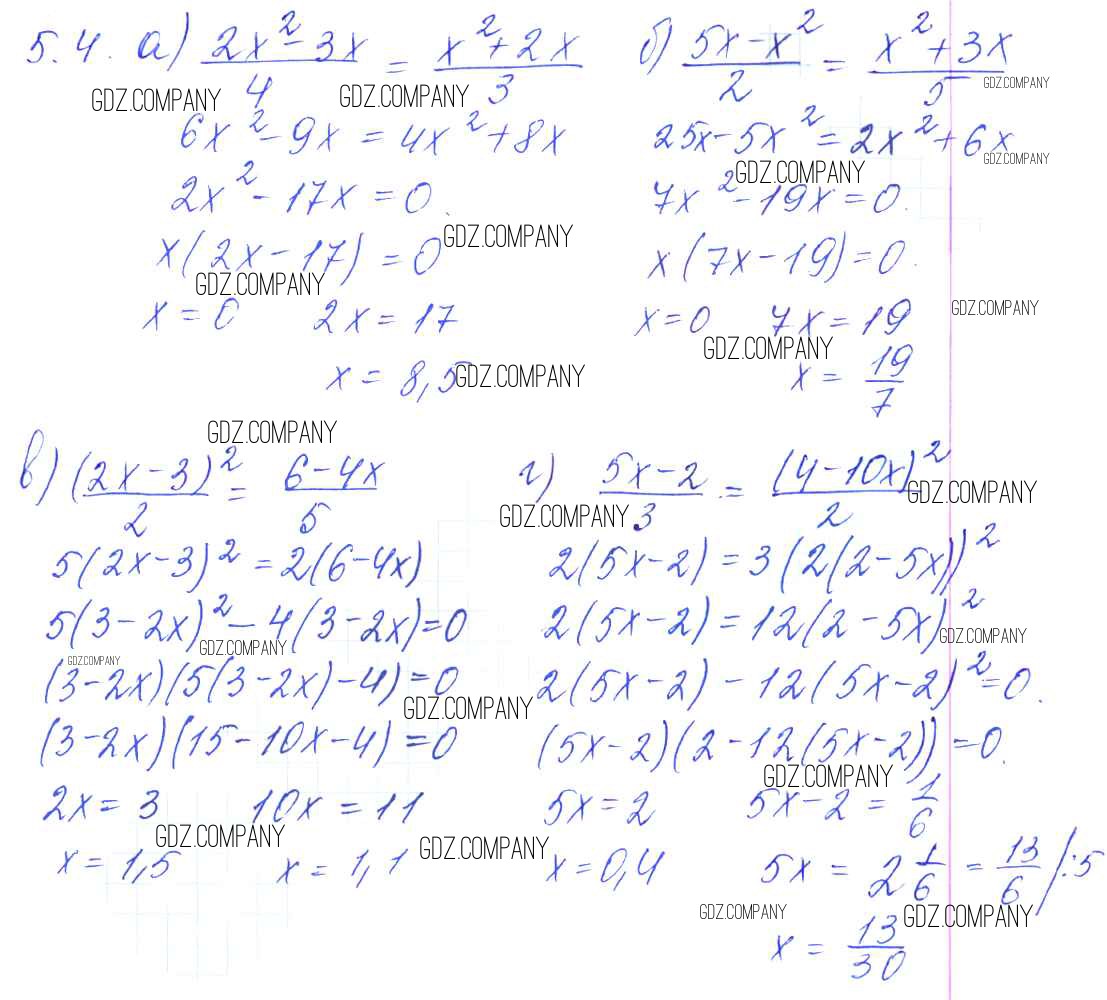 5.4. а) (2x² - 3x)/4 = (x² + 2x)/3
GDZ.COMPANY GDZ.COMPANY
6x² - 9x = 4x² + 8x
2x² - 17x = 0.
GDZ.COMPANY
x(2x - 17) = 0
GDZ.COMPANY
x = 0 2x = 17
x = 8,5
GDZ.COMPANY
б) (5x - x²)/2 = (x² + 3x)/5
GDZ.COMPANY
25x - 5x² = 2x² + 6x
GDZ.COMPANY GDZ.COMPANY
7x² - 19x = 0.
x(7x - 19) = 0.
x = 0 7x = 19
GDZ.COMPANY
GDZ.COMPANY
x = 19/7
GDZ.COMPANY
в) (2x - 3)²/2 = (6 - 4x)/5
5(2x - 3)² = 2(6 - 4x)
5(3 - 2x)² - 4(3 - 2x) = 0
GDZ.COMPANY GDZ.COMPANY
(3 - 2x)(5(3 - 2x) - 4) = 0
GDZ.COMPANY
(3 - 2x)(15 - 10x - 4) = 0
2x = 3 10x = 11
GDZ.COMPANY GDZ.COMPANY
x = 1,5 x = 1,1
г) (5x - 2)/3 = (4 - 10x)²/2
GDZ.COMPANY GDZ.COMPANY
2(5x - 2) = 3(2(2 - 5x))²
2(5x - 2) = 12(2 - 5x)²
GDZ.COMPANY
2(5x - 2) - 12(5x - 2)² = 0.
(5x - 2)(2 - 12(5x - 2)) = 0.
GDZ.COMPANY
5x = 2 5x - 2 = 1/6
x = 0,4 5x = 2 1/6 = 13/6 /:5
GDZ.COMPANY GDZ.COMPANY
x = 13/30